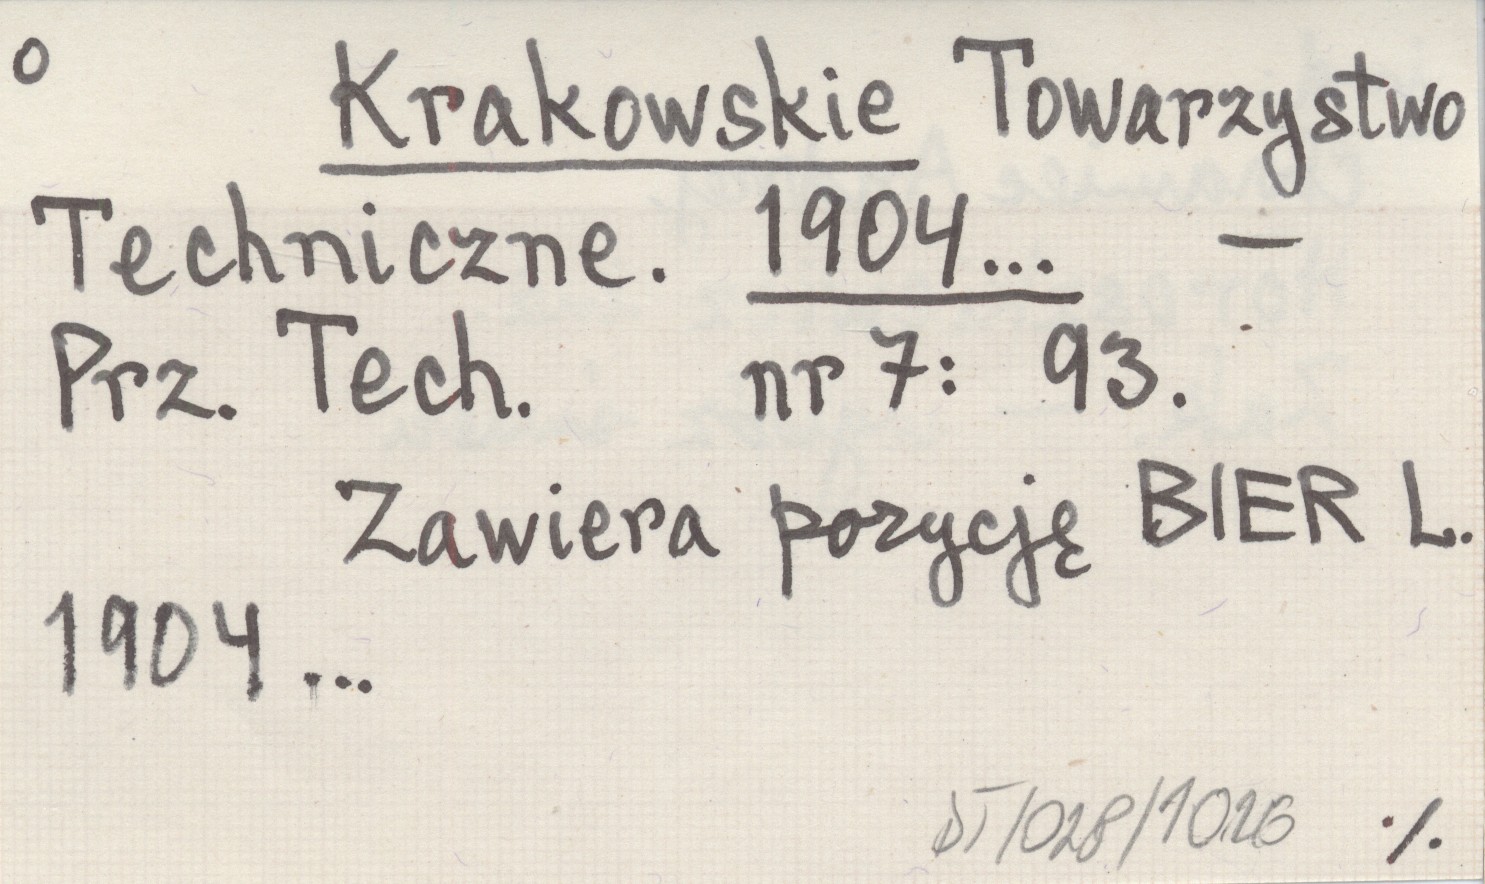 o Krakowskie Towarzystwo
Techniczne. 1904... —
Prz. Tech. nr 7: 93.
Zawiera pozycję BIER L.
1904...
DT/028/1026 ./.